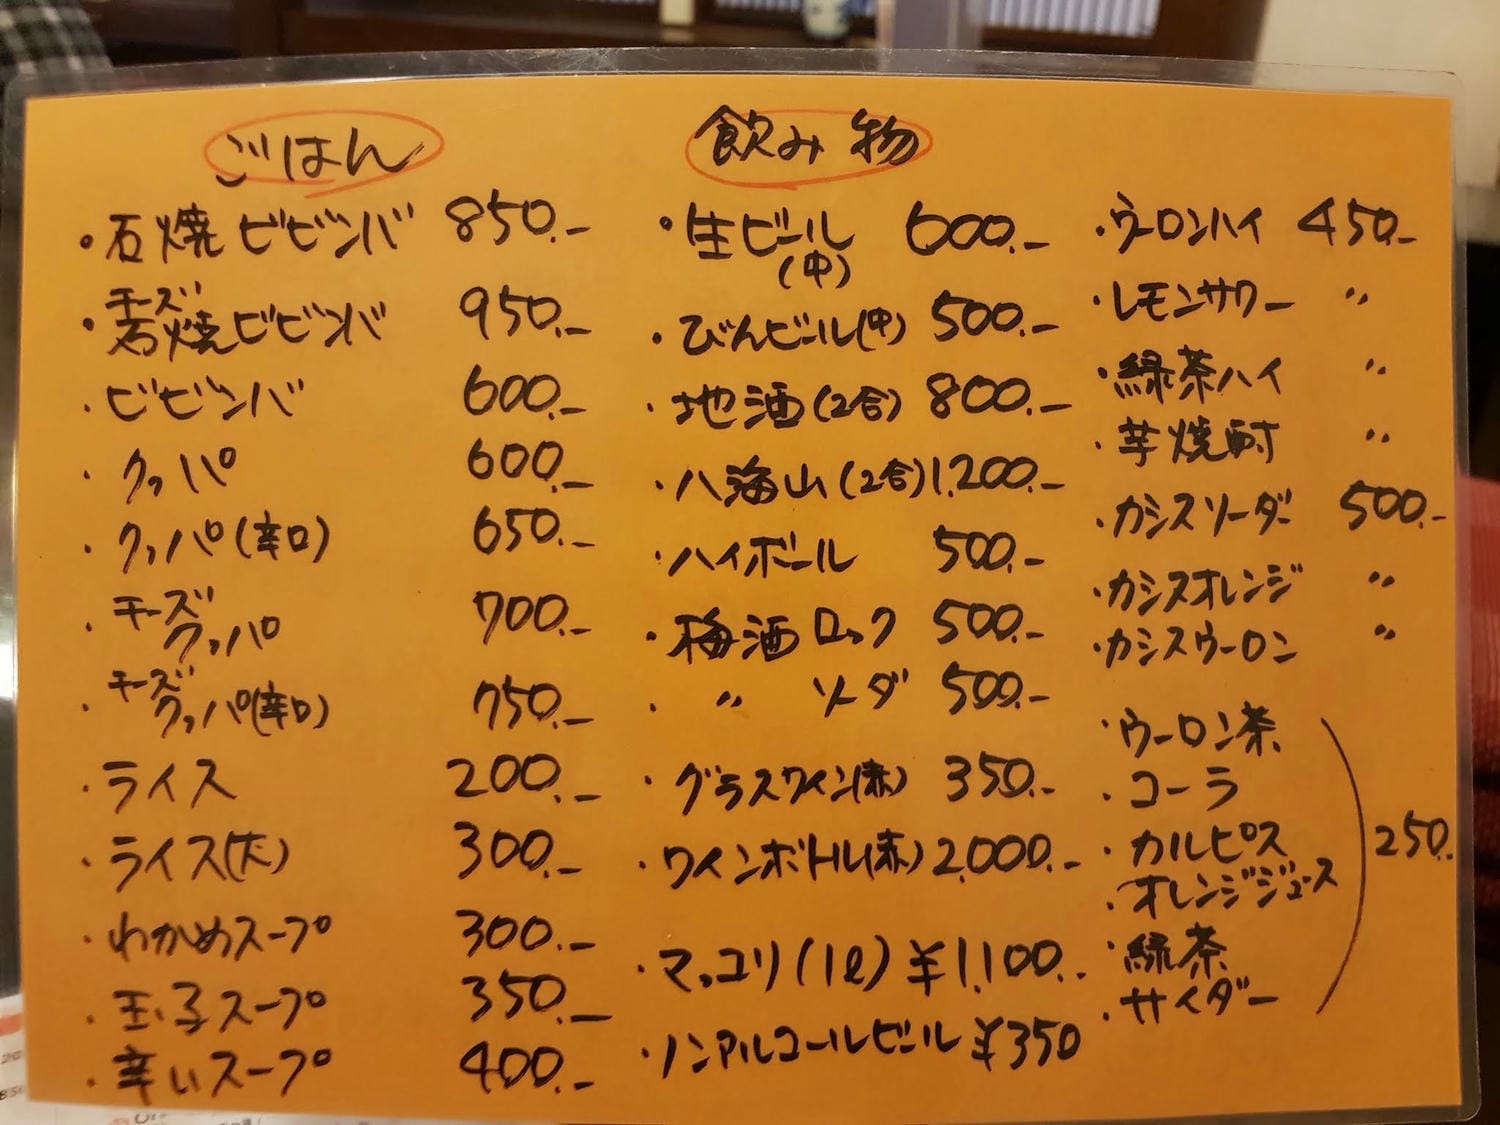 ごはん
・石焼ビビンバ 850.-
・チーズ
石焼ビビンバ 950.-
・ビビンバ 600.-
・クッパ 600.-
・クッパ(辛口) 650.-
・チーズ
クッパ 700.-
・チーズ
クッパ(辛口) 750.-
・ライス 200.-
・ライス(大) 300.-
・わかめスープ 300.-
・玉子スープ 350.-
・辛いスープ 400.-
飲み物
・生ビール 600.-
(中)
・びんビール(中) 500.-
・地酒(2合) 800.-
・八海山(2合) 1,200.-
・ハイボール 500.-
・梅酒 ロック 500.-
・〃 ソーダ 500.-
・グラスワイン(赤) 350.-
・ワインボトル(赤) 2,000.-
・マッコリ(1ℓ) ¥1,100.-
・ノンアルコールビール ¥350
・ウーロンハイ 450.-
・レモンサワー 〃
・緑茶ハイ 〃
・芋焼酎 〃
・カシスソーダー 500.-
・カシスオレンジ 〃
・カシスウーロン 〃
・ウーロン茶
・コーラ
・カルピス 250.
・オレンジジュース
・緑茶
・サイダー